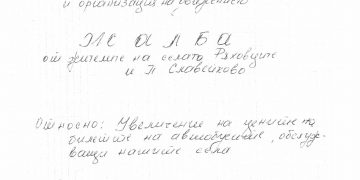 и организация на движението
Ж а л б а
от жителите на селата Ряховците
и П Славейково
Относно: Увеличение на цените на
билетите на автобусите, обслуж-
ващи нашите села